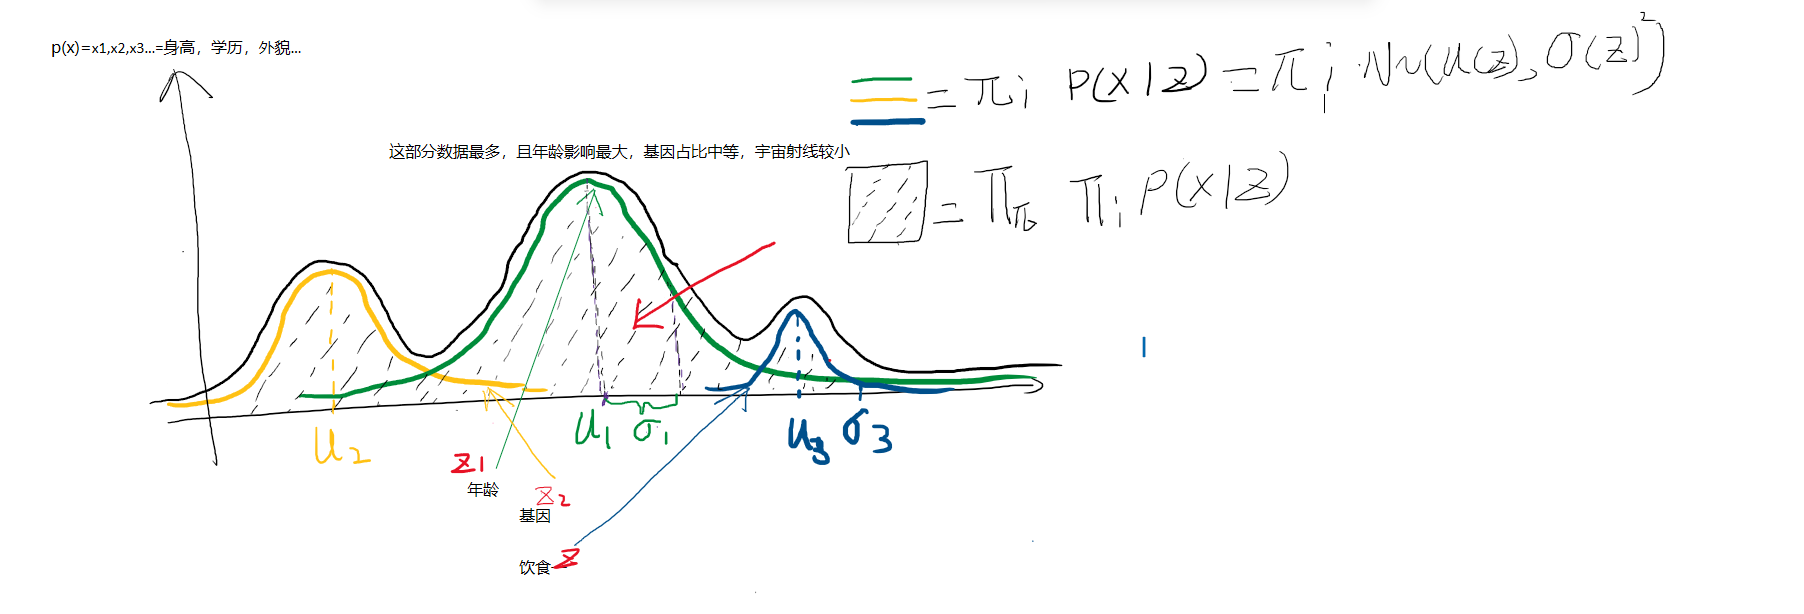 p(x)=x1,x2,x3...=身高，学历，外貌...
= πi P(X|Z) = πi · N~(u(z), σ(z)²)
这部分数据最多，且年龄影响最大，基因占比中等，宇宙射线较小
= πi P(X|Z)
u2
u1 σ1
u3 σ3
z1
年龄
z2
基因
饮食 z